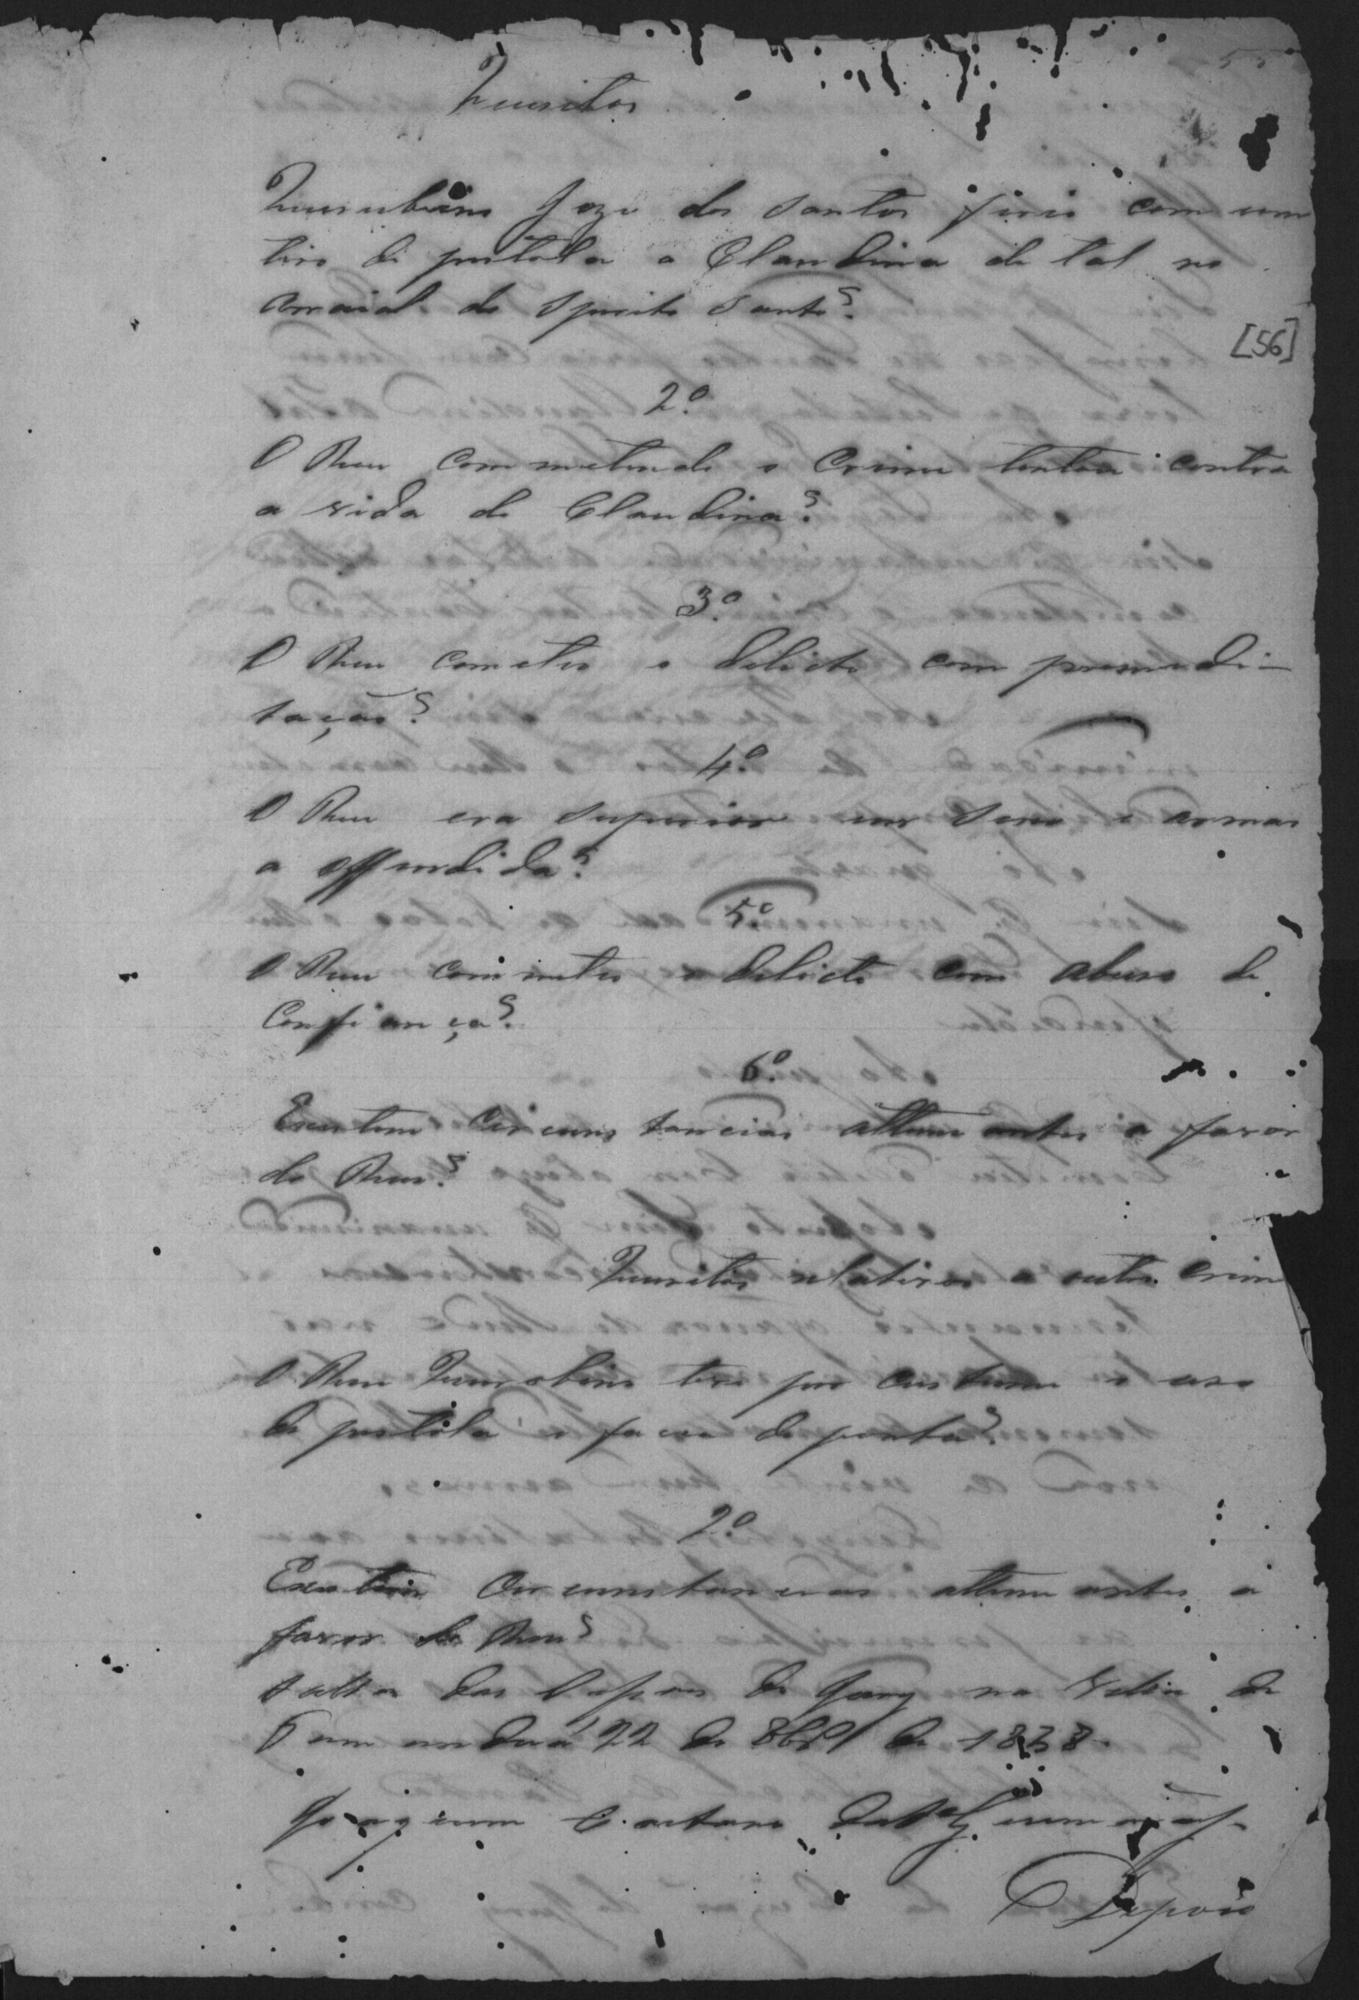 55
Quesitos
Querubino Joze dos Santos firio com um
tiro de pistola a Claudina de tal no
arraial do Spirito Santo?
[56]
2º
O Reu commetendo o Crime tentou contra
a vida de Claudina?
3º
O Reu cometeo o delicto com premedi-
tação?
4º
O Reu era superior em sexo e armas
a offendida?
5º
O Reu commeteo o delicto com abuso de
Confiança?
6º
Existem Circunstancias attenuantes a favor
do Reu?
Quesitos relativos a outro crime
O Reu Querobino tem por custume o uso
de pistola e faca de ponta?
2º
Existem Circumstancias attenuantes a
favor do Reu?
Salla das do Jury na Villa de
Tamanduá 22 de 8bro de 1838.
Joaquim Caetano
Depois